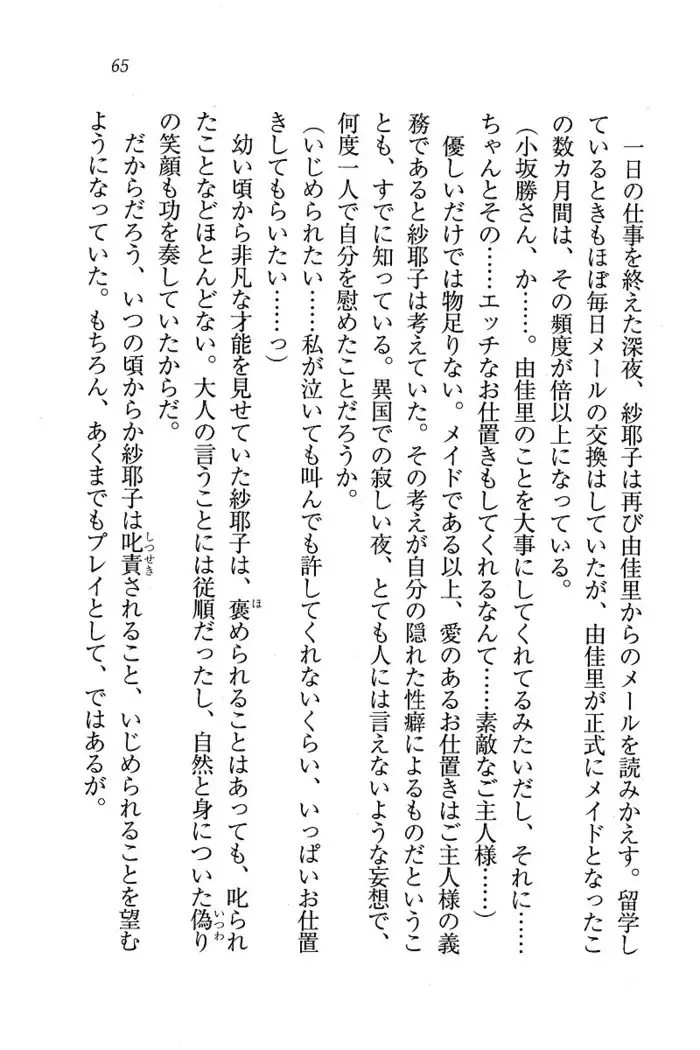 65
一日の仕事を終えた深夜、紗耶子は再び由佳里からのメールを読みかえす。留学し
ているときもほぼ毎日メールの交換はしていたが、由佳里が正式にメイドとなったこ
の数カ月間は、その頻度が倍以上になっている。
（小坂勝さん、か……。由佳里のことを大事にしてくれてるみたいだし、それに……
ちゃんとその……エッチなお仕置きもしてくれるなんて……素敵なご主人様……）
優しいだけでは物足りない。メイドである以上、愛のあるお仕置きはご主人様の義
務であると紗耶子は考えていた。その考えが自分の隠れた性癖によるものだというこ
とも、すでに知っている。異国での寂しい夜、とても人には言えないような妄想で、
何度一人で自分を慰めたことだろうか。
（いじめられたい……私が泣いても叫んでも許してくれないくらい、いっぱいお仕置
きしてもらいたい……っ）
幼い頃から非凡な才能を見せていた紗耶子は、褒められることはあっても、叱られ
たことなどほとんどない。大人の言うことには従順だったし、自然と身についた偽り
の笑顔も功を奏していたからだ。
だからだろう、いつの頃からか紗耶子は叱責されること、いじめられることを望む
ようになっていた。もちろん、あくまでもプレイとして、ではあるが。